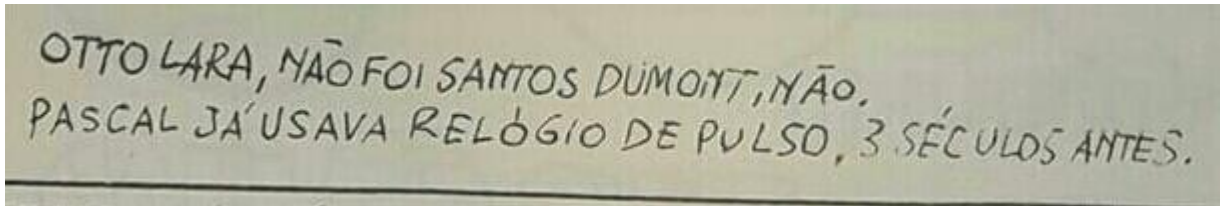 OTTO LARA, NÃO FOI SANTOS DUMONT, NÃO.
PASCAL JÁ USAVA RELÓGIO DE PULSO, 3 SÉCULOS ANTES.